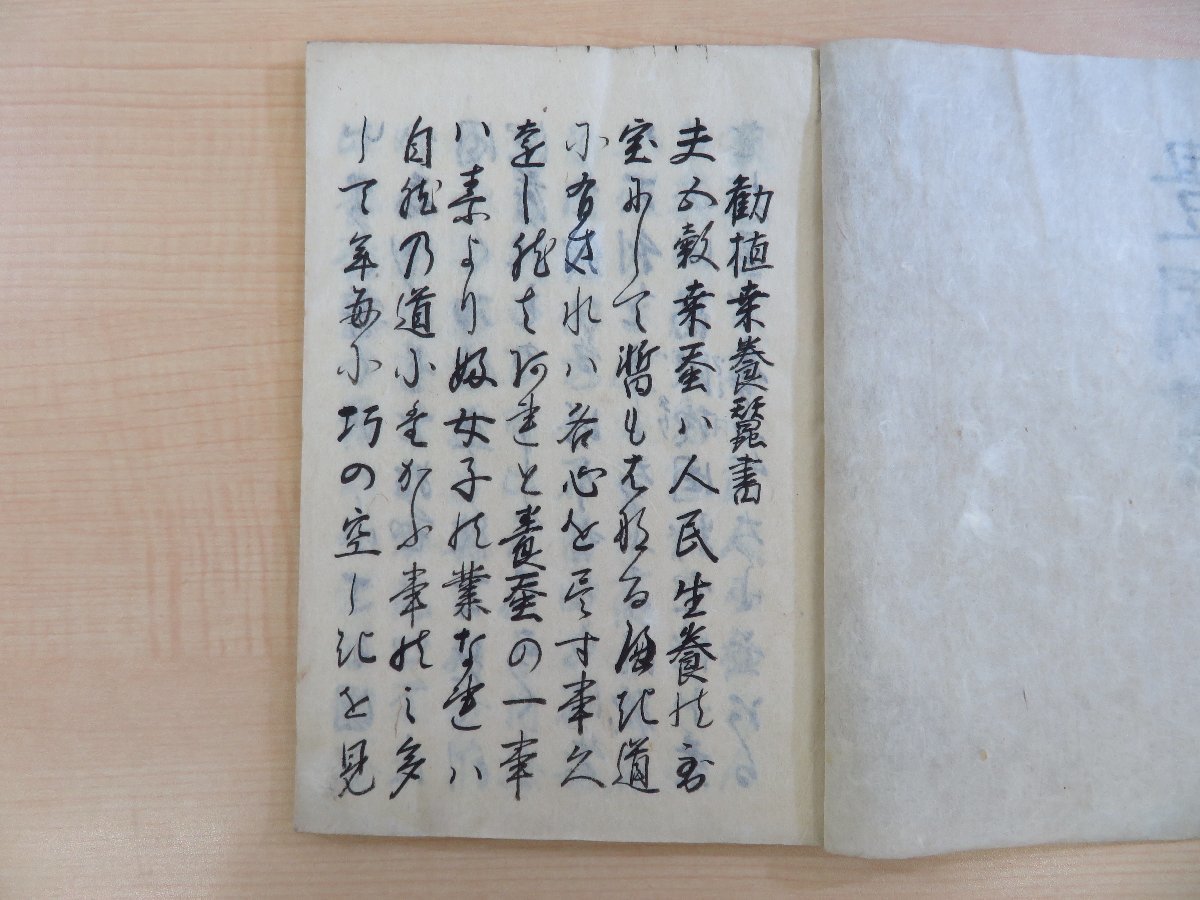 勧植桒養蠶書
夫五穀桒蚕ハ人民生養の至
宝にして暫もはなるへき道
に有されハ各心を尽す事久
遠し然はあれと養蚕の一事
ハ素より婦女子の業なれハ
自然の道にたかふ事のミ多
して年毎に巧の空しきを見